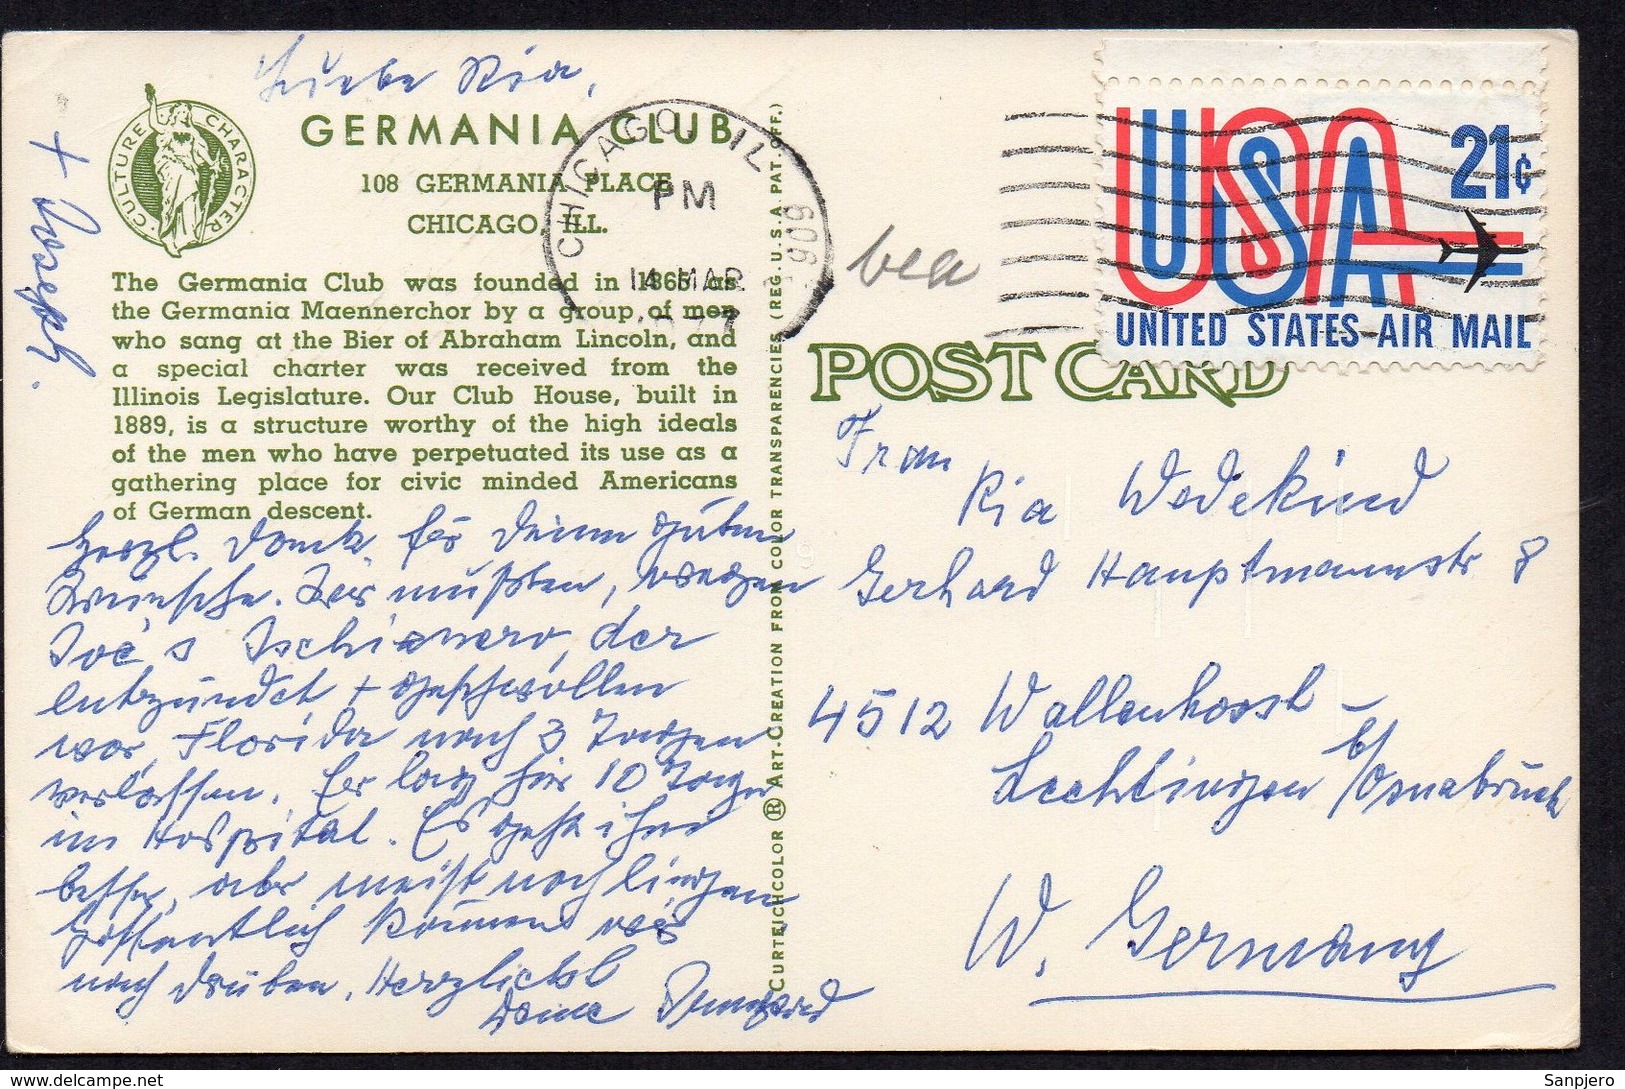 Liebe Ria,
GERMANIA CLUB
108 GERMANIA PLACE
CHICAGO, ILL.
CULTURE CHARACTER CULTURE
The Germania Club was founded in 1865 as
the Germania Maennerchor by a group of men
who sang at the Bier of Abraham Lincoln, and
a special charter was received from the
Illinois Legislature. Our Club House, built in
1889, is a structure worthy of the high ideals
of the men who have perpetuated its use as a
gathering place for civic minded Americans
of German descent.
Herzl. Dank für Deine guten
Wünsche. Wir mußten, wegen
Joe's Ischiasnerv, der
entzündet + geschwollen
war, Florida nach 3 Tagen
verlassen. Er lag hier 10 Tage
im Hospital. Es geht ihm
besser, aber meist noch liegen
Hoffentlich können wir
nach drüben. Herzlichst
Deine
+ Joseph.
CURTEICHCOLOR ® ART-CREATION FROM COLOR TRANSPARENCIES (REG. U.S.A. PAT. OFF.)
CHICAGO, IL
PM
14 MAR
606
bea
USA 21¢
UNITED STATES AIR MAIL
POST CARD
Frau
Ria Wedekind
Gerhard Hauptmannstr 8
4512 Wallenhorst-
Lechtingen b/Osnabrück
W. Germany
Sanpjero